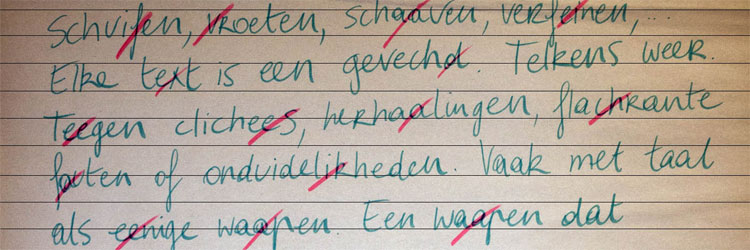 Schuifen, vroeten, schaaven, verfeinen,...
Elke text is een gevechd. Telkens weer.
Teegen clichees, herhaalingen, flachrante
fauten of onduidelikheden. Vaak met taal
als eenige waapen. Een waapen dat